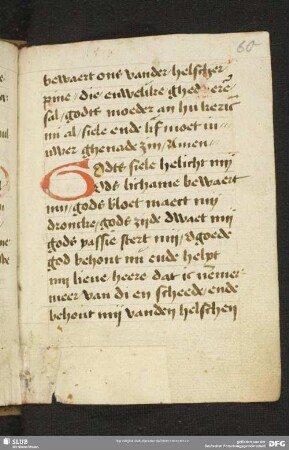 60
bewaert ons vander helscher
pine / die euwelike ghed erē
sal / godts moeder an hu keric
mi al / siele ende lif moet in
uwer ghenade zijn / Amen /
Godts siele helicht mij
gods lichame bewaert
mij / gods bloet maect mij
droncke / gods zijde dwaet mij
gods passie sterct mij / o goede
god behout mi ende helpt
mij lieue heere dat ic nēmer
meer van di en scheede / ende
behout mij vanden helschen
SLUB
DFG